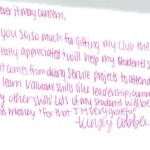 ever it may concern,
you so, so much for gifting my club the
eatly appreciated & will help my students
at comes from doing service projects to attend
learn valuable skills like leadership, comm
y other skills! Lots of my students will be
is money & for that I'm very grateful!